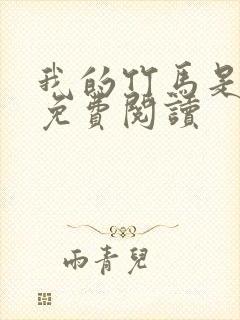 我的竹馬是
免費閱讀
雨青兒